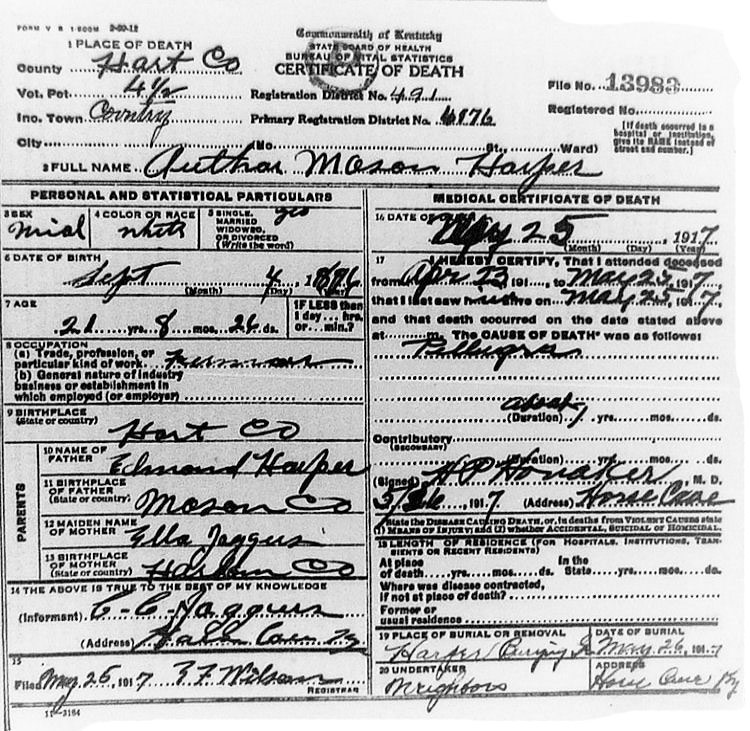 FORM V. S. 1-500M 2-20-12
Commonwealth of Kentucky
STATE BOARD OF HEALTH
BUREAU OF VITAL STATISTICS
CERTIFICATE OF DEATH
1 PLACE OF DEATH
County Hart Co
Vot. Pct. 4 1/2
Inc. Town Country
City
Registration District No. 491
Primary Registration District No. 4876
(No. St., Ward)
File No. 13983
Registered No.
[If death occurred in a hospital or institution, give its NAME instead of street and number.]
2 FULL NAME Authar Mason Harper
PERSONAL AND STATISTICAL PARTICULARS
3 SEX Mial
4 COLOR OR RACE white
5 SINGLE, MARRIED WIDOWED, OR DIVORCED (Write the word)
6 DATE OF BIRTH
Sept 4, 1896
(Month) (Day) (Year)
7 AGE
21 yrs. 8 mos. 26 ds.
IF LESS than 1 day... hrs. or... min.?
8 OCCUPATION
(a) Trade, profession, or particular kind of work
(b) General nature of industry business or establishment in which employed (or employer)
9 BIRTHPLACE
(State or country)
Hart Co
PARENTS
10 NAME OF FATHER Edmond Harper
11 BIRTHPLACE OF FATHER (State or country) Mason Co
12 MAIDEN NAME OF MOTHER Ella Jaggus
13 BIRTHPLACE OF MOTHER (State or country) Co
14 THE ABOVE IS TRUE TO THE BEST OF MY KNOWLEDGE
(Informant) Jaggus
(Address) Ky
15
Filed May 25, 1917 Wilson
REGISTRAR
11-3184
MEDICAL CERTIFICATE OF DEATH
16 DATE OF May 25, 1917
(Month) (Day) (Year)
17 I HEREBY CERTIFY, That I attended deceased
from Apr 23 191, to May 25, 1917,
that I last saw h alive on May 25, 1917,
and that death occurred on the date stated above
at m. The CAUSE OF DEATH* was as follows:
Pellugra
about
(Duration) 1 yrs. mos. ds.
Contributory
(SECONDARY)
(Duration) yrs. mos. ds.
(Signed) H P Honaker M. D.
5/26, 1917 (Address) Horse Cave
*State the DISEASE CAUSING DEATH, or, in deaths from VIOLENT CAUSES state
(1) MEANS OF INJURY; and (2) whether ACCIDENTAL, SUICIDAL or HOMICIDAL.
18 LENGTH OF RESIDENCE (FOR HOSPITALS, INSTITUTIONS, TRANSIENTS OR RECENT RESIDENTS)
At place of death yrs. mos. ds. In the State yrs. mos. ds.
Where was disease contracted, if not at place of death?
Former or usual residence
19 PLACE OF BURIAL OR REMOVAL
Harper
DATE OF BURIAL
May 26, 1917
20 UNDERTAKER
Neighbors
ADDRESS
Horse Cave Ky